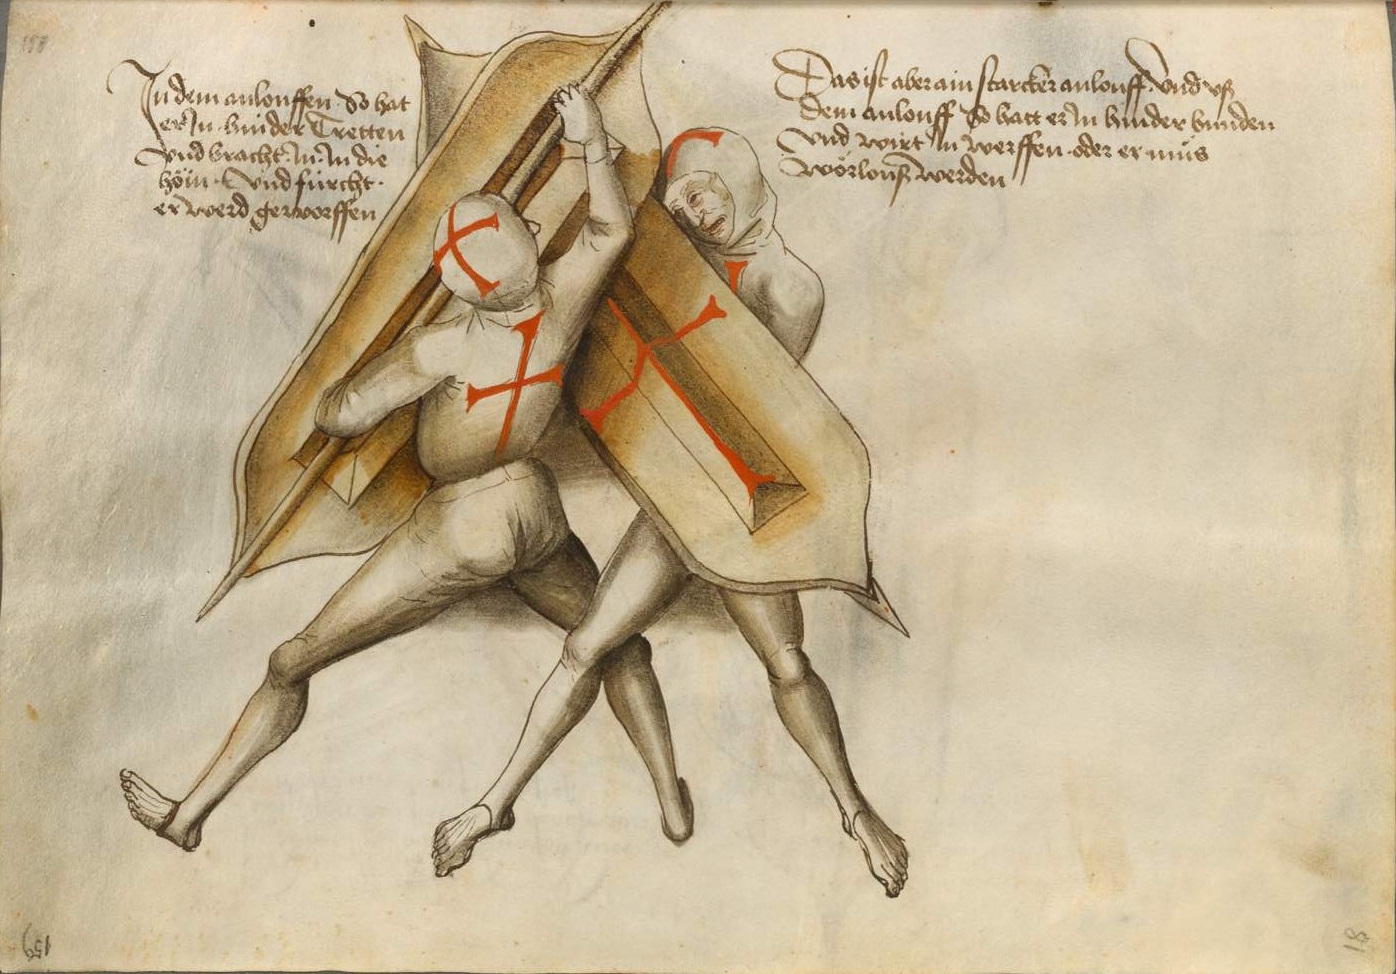 In dem anlouffen · So hat
er In · hinder Tretten
vnd bracht · In · In die
höin · Vnd fürcht ·
er werd geworffen
Das ist aber ain starcker anlouff · Vnd vß
dem anlouff So hatt er In hinder bunden
vnd wirt In werffen · oder er müs
wörlouß werden
159